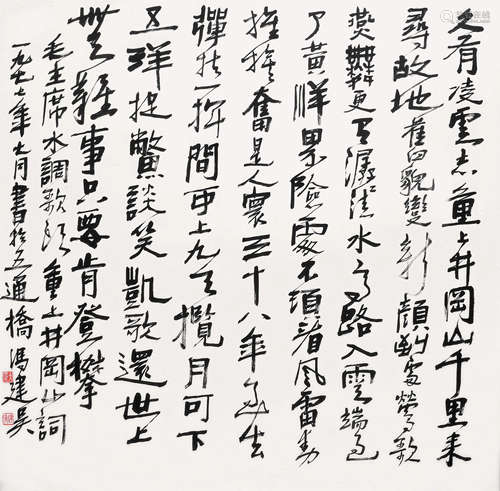 久有凌雲志重上井岡山千里来
尋故地舊貌變新顔到處鶯歌
燕舞更有潺潺流水高路入雲端過
了黄洋界險處不須看風雷動
旌旗奮是人寰三十八年過去
彈指一揮間可上九天攬月可下
五洋捉鱉談笑凱歌還世上
無難事只要肯登攀
毛主席水調歌頭重上井岡山詞
一九七七年 月書於五通橋馮建吳